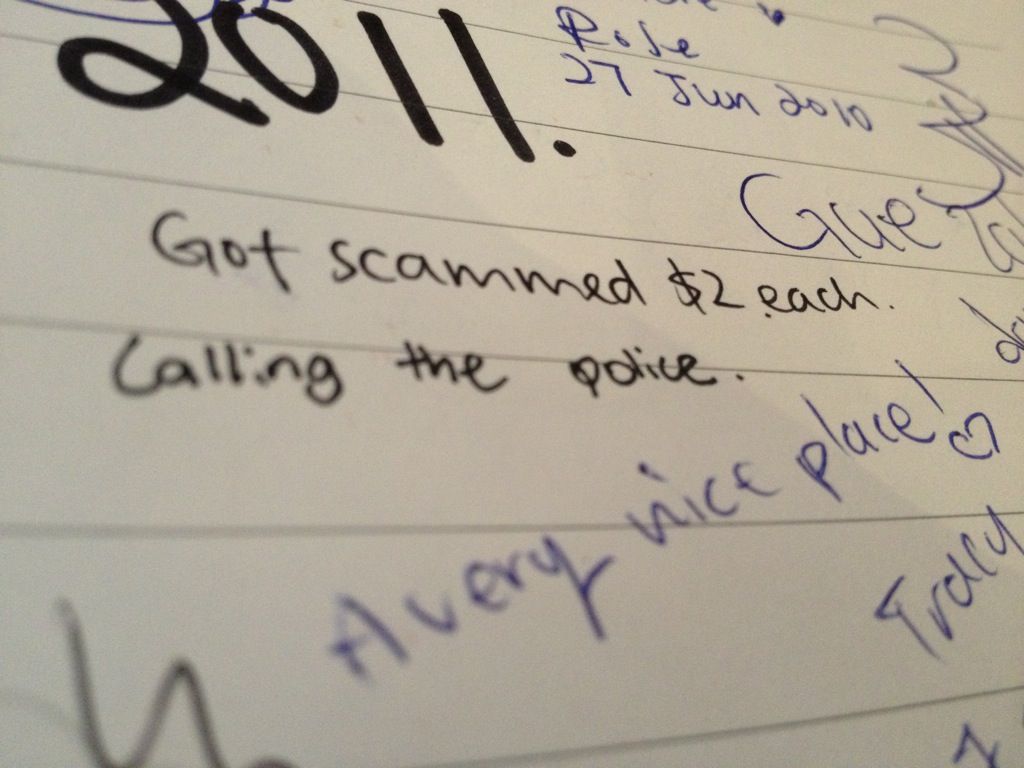 2011.
Rose
27 Jun 2010
Got scammed $2 each.
Calling the police.
A very nice place!
Tracy